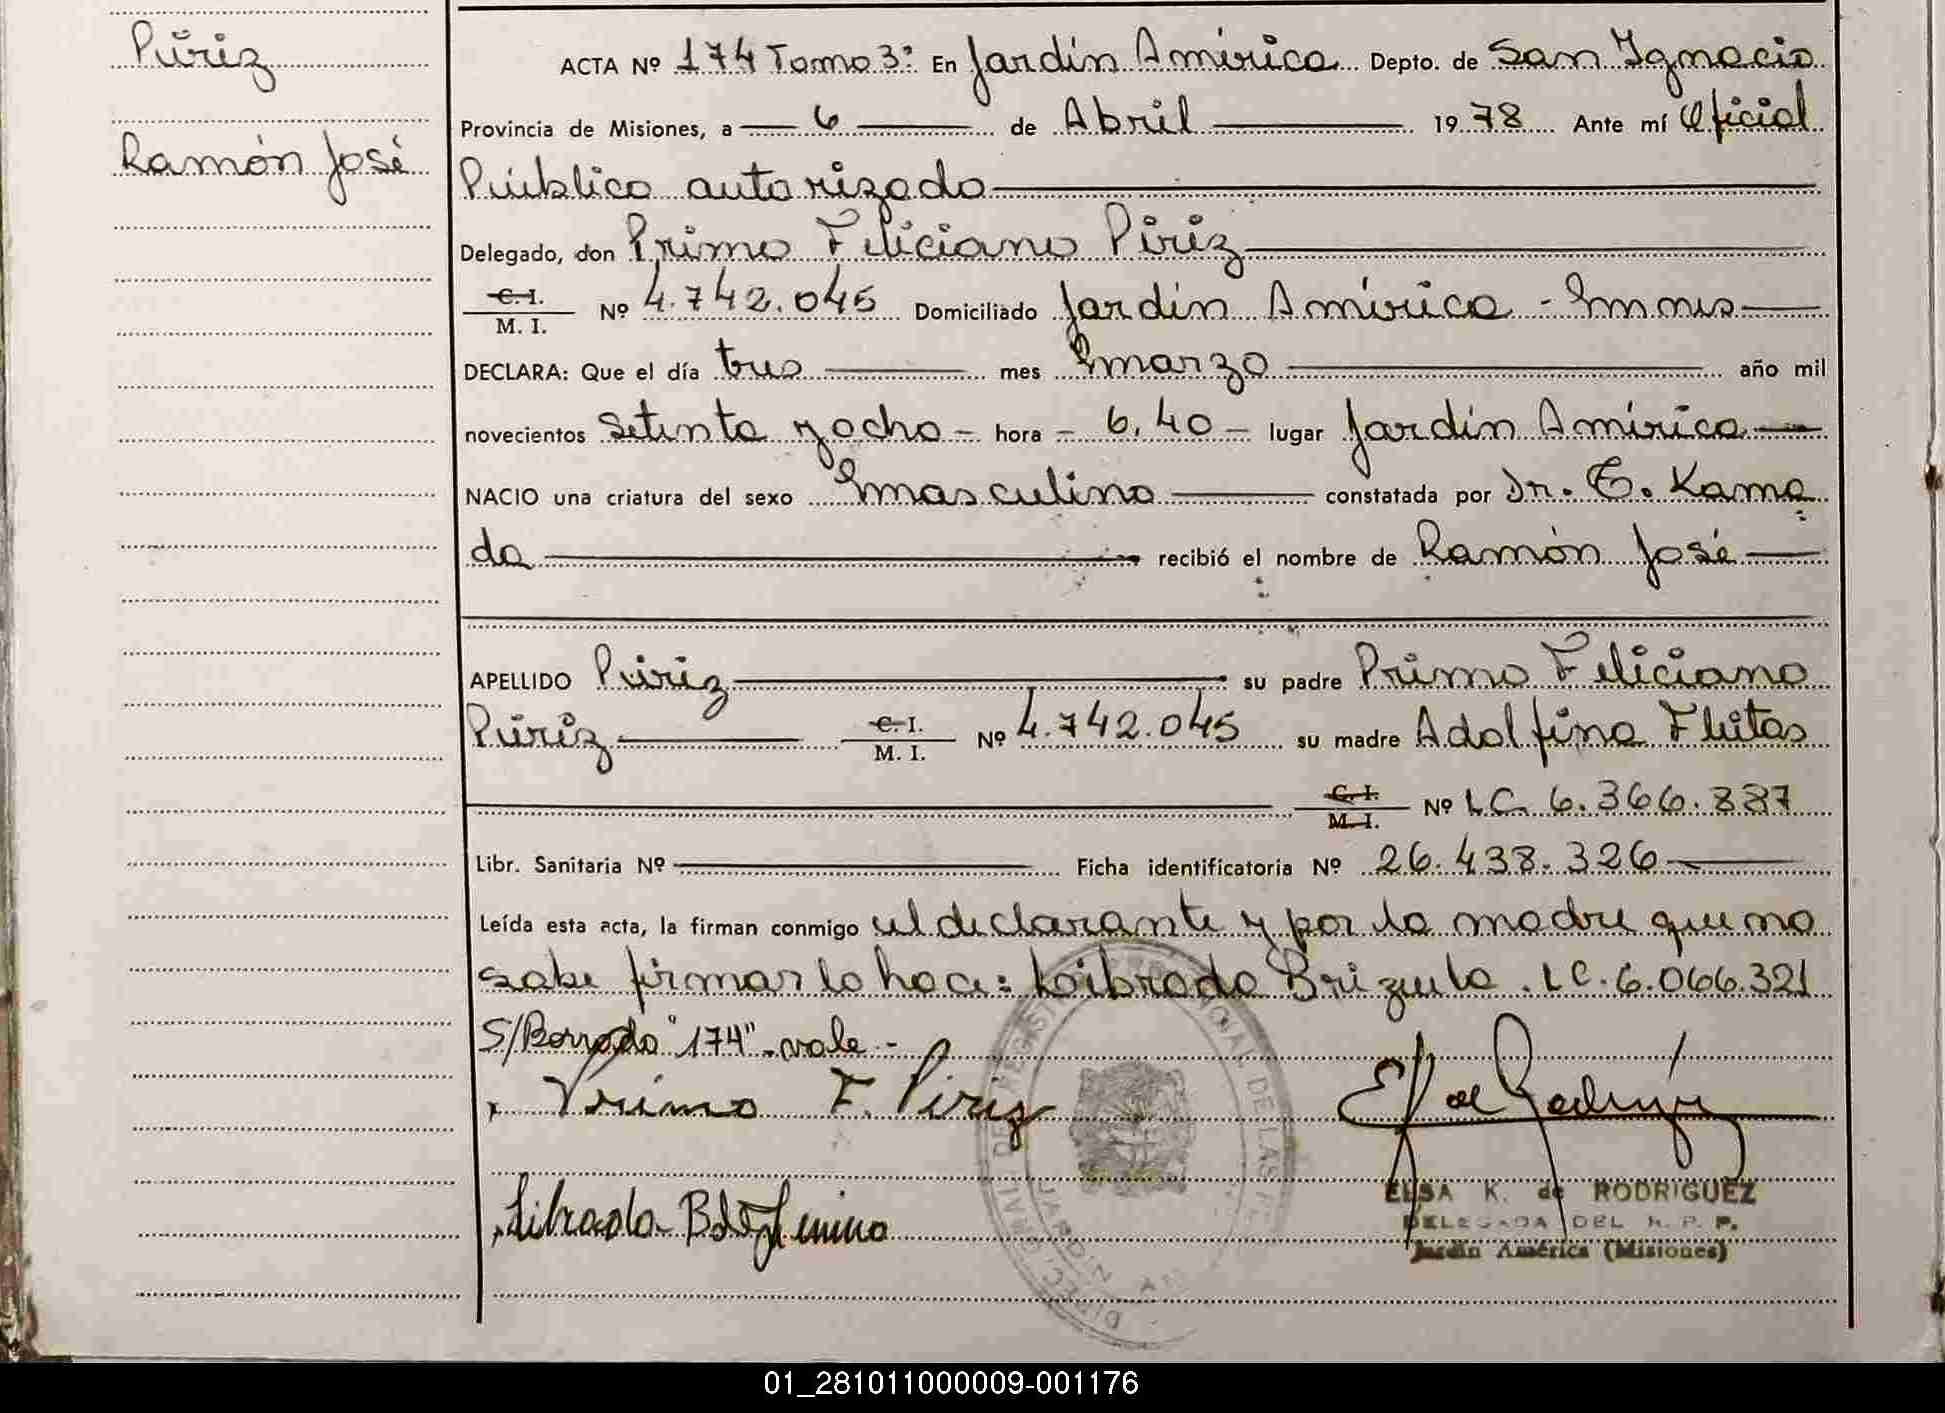 Píriz
Ramón José
ACTA Nº 174 Tomo 3º En Jardín América Depto. de San Ignacio
Provincia de Misiones, a 6 de Abril 1978 Ante mí Oficial
Público autorizado
Delegado, don Primo Feliciano Píriz
C. I. M. I. Nº 4.742.045 Domiciliado Jardín América - Mnes
DECLARA: Que el día tres mes marzo año mil
novecientos setenta y ocho - hora - 6,40 - lugar Jardín América
NACIO una criatura del sexo masculino constatada por Dr. E. Kama
da recibió el nombre de Ramón José
APELLIDO Píriz su padre Primo Feliciano
Píriz C. I. M. I. Nº 4.742.045 su madre Adolfina Fleitas
C. I. M. I. Nº L.C. 6.366.887
Libr. Sanitaria Nº Ficha identificatoria Nº 26.438.326
Leída esta acta, la firman conmigo el declarante y por la madre que no
sabe firmar lo hace: Librada Brizuela. LC. 6.066.321
S/Borrado "174" - vale -
Primo F. Piriz
Librada
ELSA K. de RODRIGUEZ
DELEGADA DEL R. P. P.
Jardín América (Misiones)
01_281011000009-001176